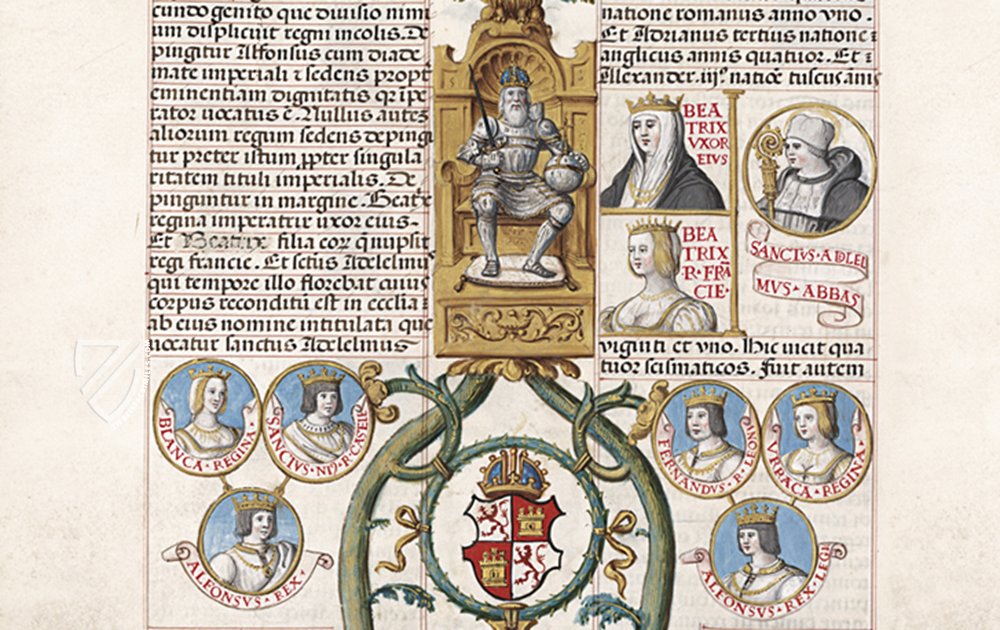 cundo genito que diuisio nimi
um displicuit regni incolis. De
pingitur Alfonsus cum diade
mate imperiali ⁊ sedens propt
eminentiam dignitatis qr ipe
rator uocatus ē. Nullus autez
aliorum regum sedens depingi
tur preter istum ꝓpter singula
ritatem tituli imperialis. De
pinguntur in margine. Beatx
regina imperatrix uxor eius.
Et Beatrix filia eorꝫ q nupsit
regi francie. Et sctus Adelelmꝰ
qui tempore illo florebat cuiꝰ
corpus reconditū est in ecclia
ab eius nomine intitulata que
uocatur sanctus Adelelmus
natione romanus anno uno.
Et Adrianus tertius natione
anglicus annis quatuor. Et
Alexander .iijꝰ natiōe tuscus anis
BEA
TRIX
VXOR
EIVS
BEA
TRIX
R·FRĀ
CIE·
SANCTVS·ADLEL
MVS·ABBAS
viginti et vno. Hic uicit qua
tuor scismaticos. Fuit autem
BLANCA·REGINA·
ALFONSVS·REX·
FERNANDVS·R·LEOIN
VRRACA·REGINA·
ALFONSVS·REX·LEGI